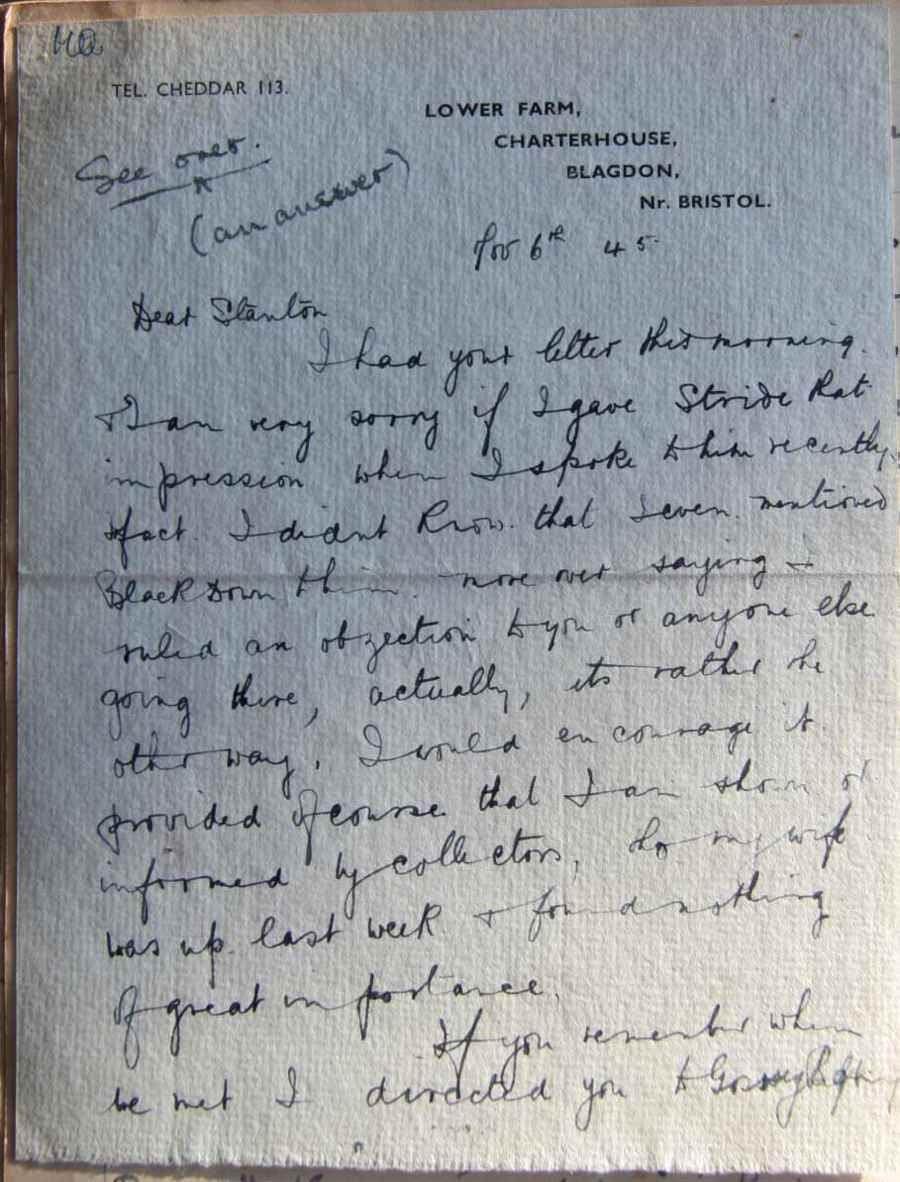 TEL. CHEDDAR 113.
LOWER FARM,
CHARTERHOUSE,
BLAGDON,
Nr. BRISTOL.
See over.
(an answer)
Nov 6th 45.
Dear Stanton
I had your letter this morning.
& I am very sorry if I gave Stride that
impression when I spoke to him recently,
fact. I didnt know. that I even. mentioned
Black Down to him. more over saying I
an objection to you or anyone else
going there, actually, its rather the
other way, I would encourage it.
provided of course that I am shown or
informed by collectors, tho my wife
was up. last week & found nothing
of great importance.
If you remember when
we met I directed you to